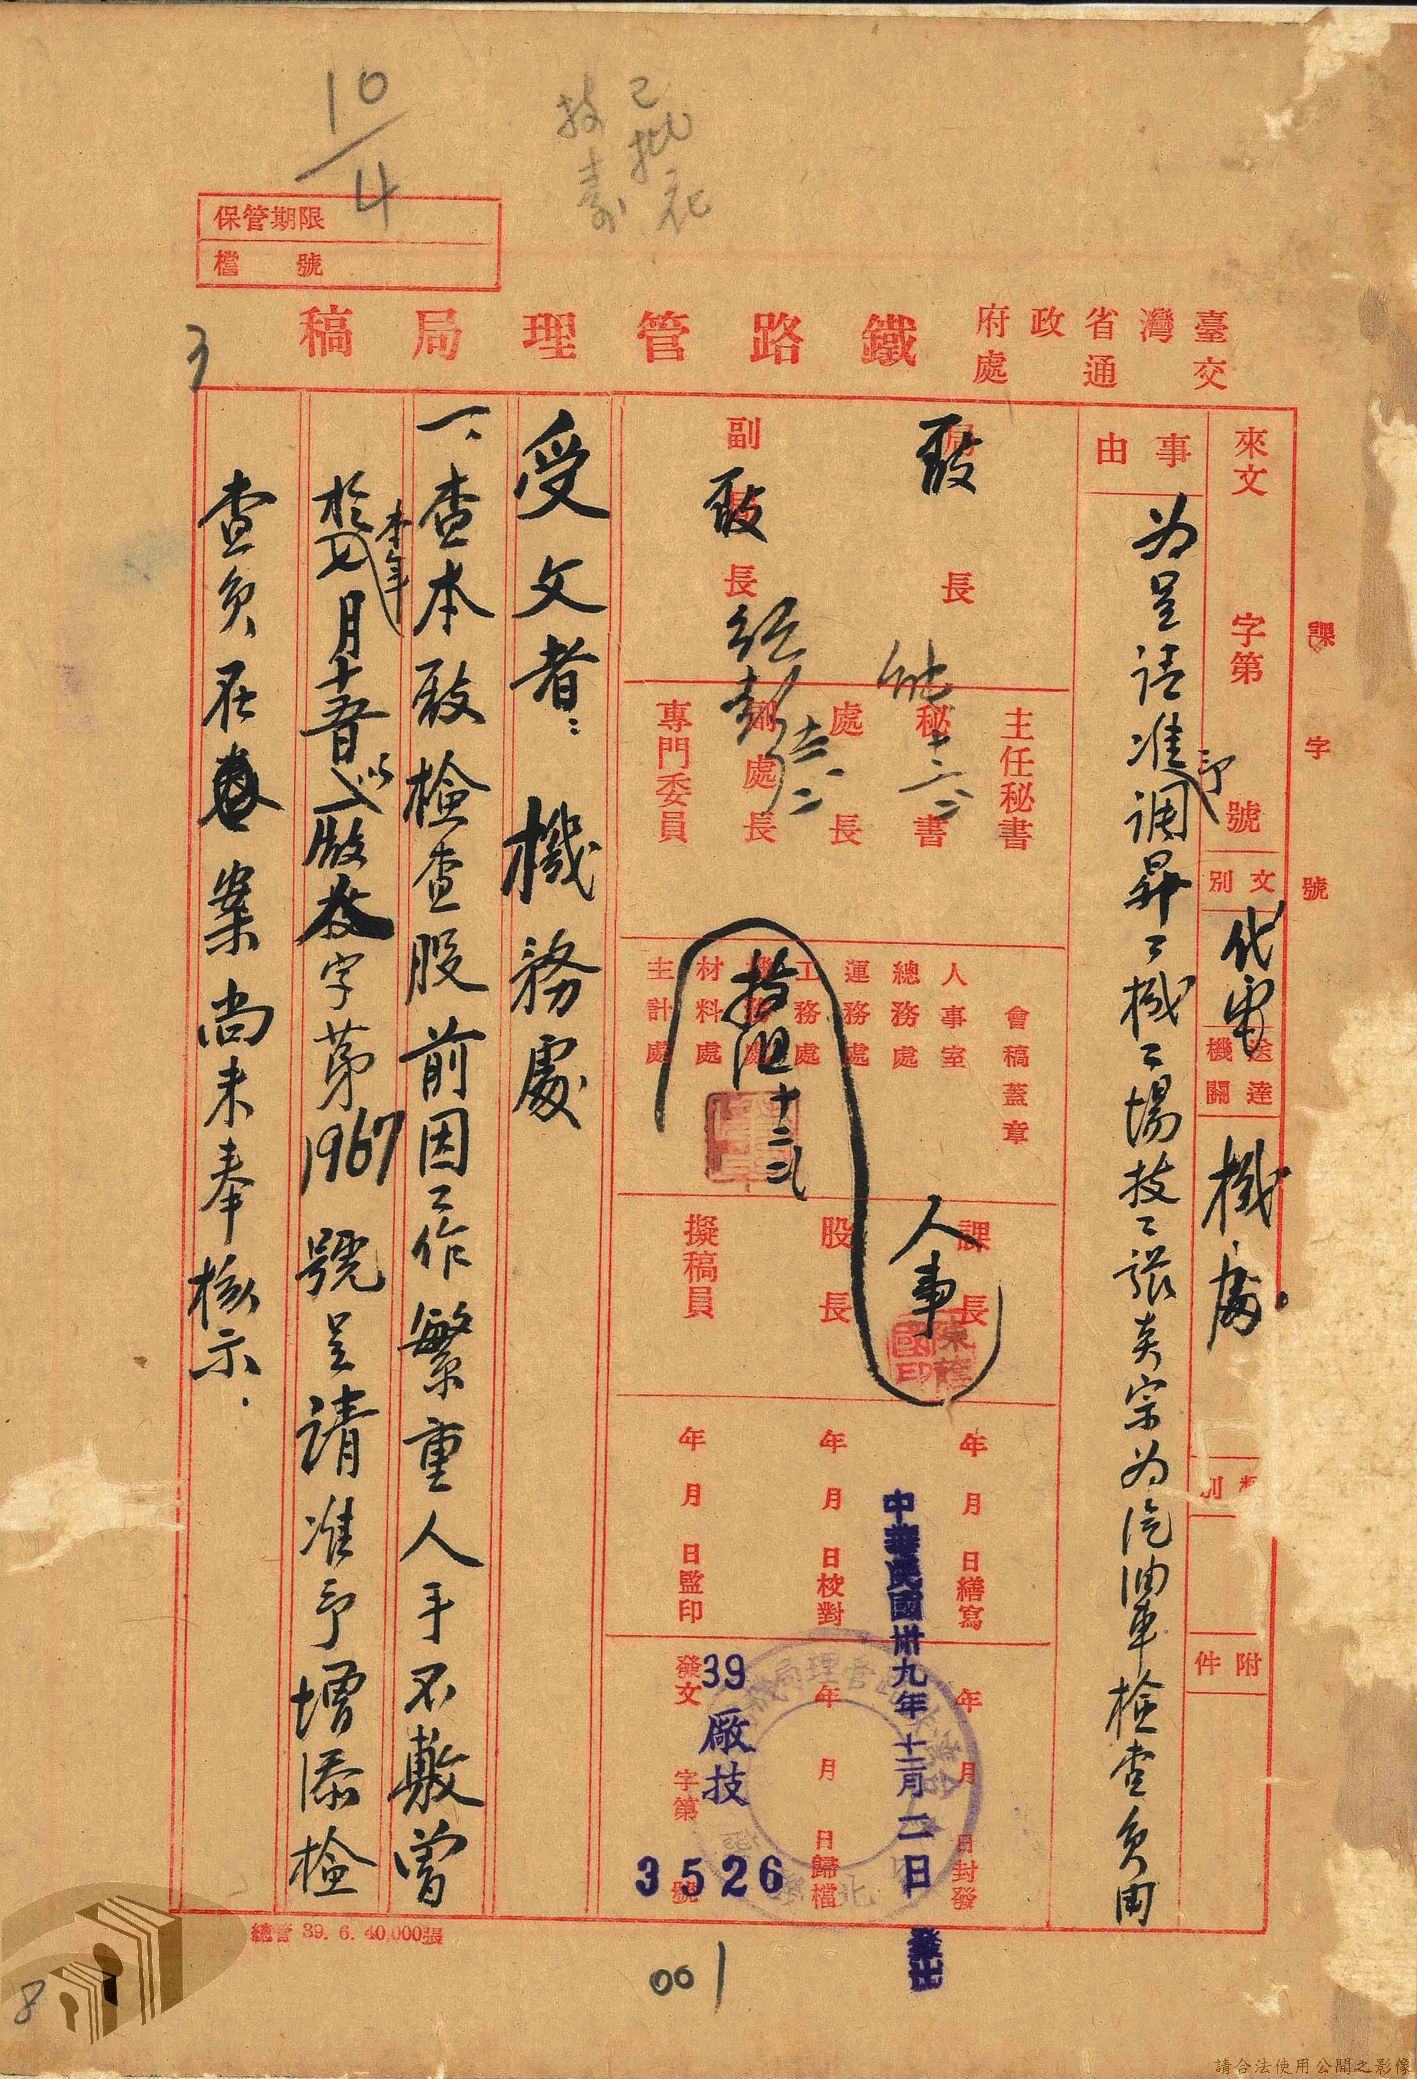 10/4
已批示
保管期限
檔號
臺灣省政府交通處
鐵路管理局稿
3
課字號
來文字第號
文別
代電
送達機關
機處
附件
事由
為呈請准予調昇工機工場技工張奕宗為汽油車檢查員由
局長
副局長
主任秘書
秘書
處長
副處長
專門委員
會稿蓋章
人事室
總務處
運務處
工務處
機務處
材料處
主計處
課長
人事
股長
擬稿員
年月日繕寫
年月日校對
年月日監印
年月日封發
年月日歸檔
中華民國卅九年十二月二日
發出
發文字第號
39廠技
3526
受文者:機務處
一、查本廠檢查股前因工作繁重人手不敷曾
於本年七月十五日以廠技字第1967號呈請准予增添檢
查員在案尚未奉核示.
總管 39. 6. 40,000張
001
8
請合法使用公開之影像